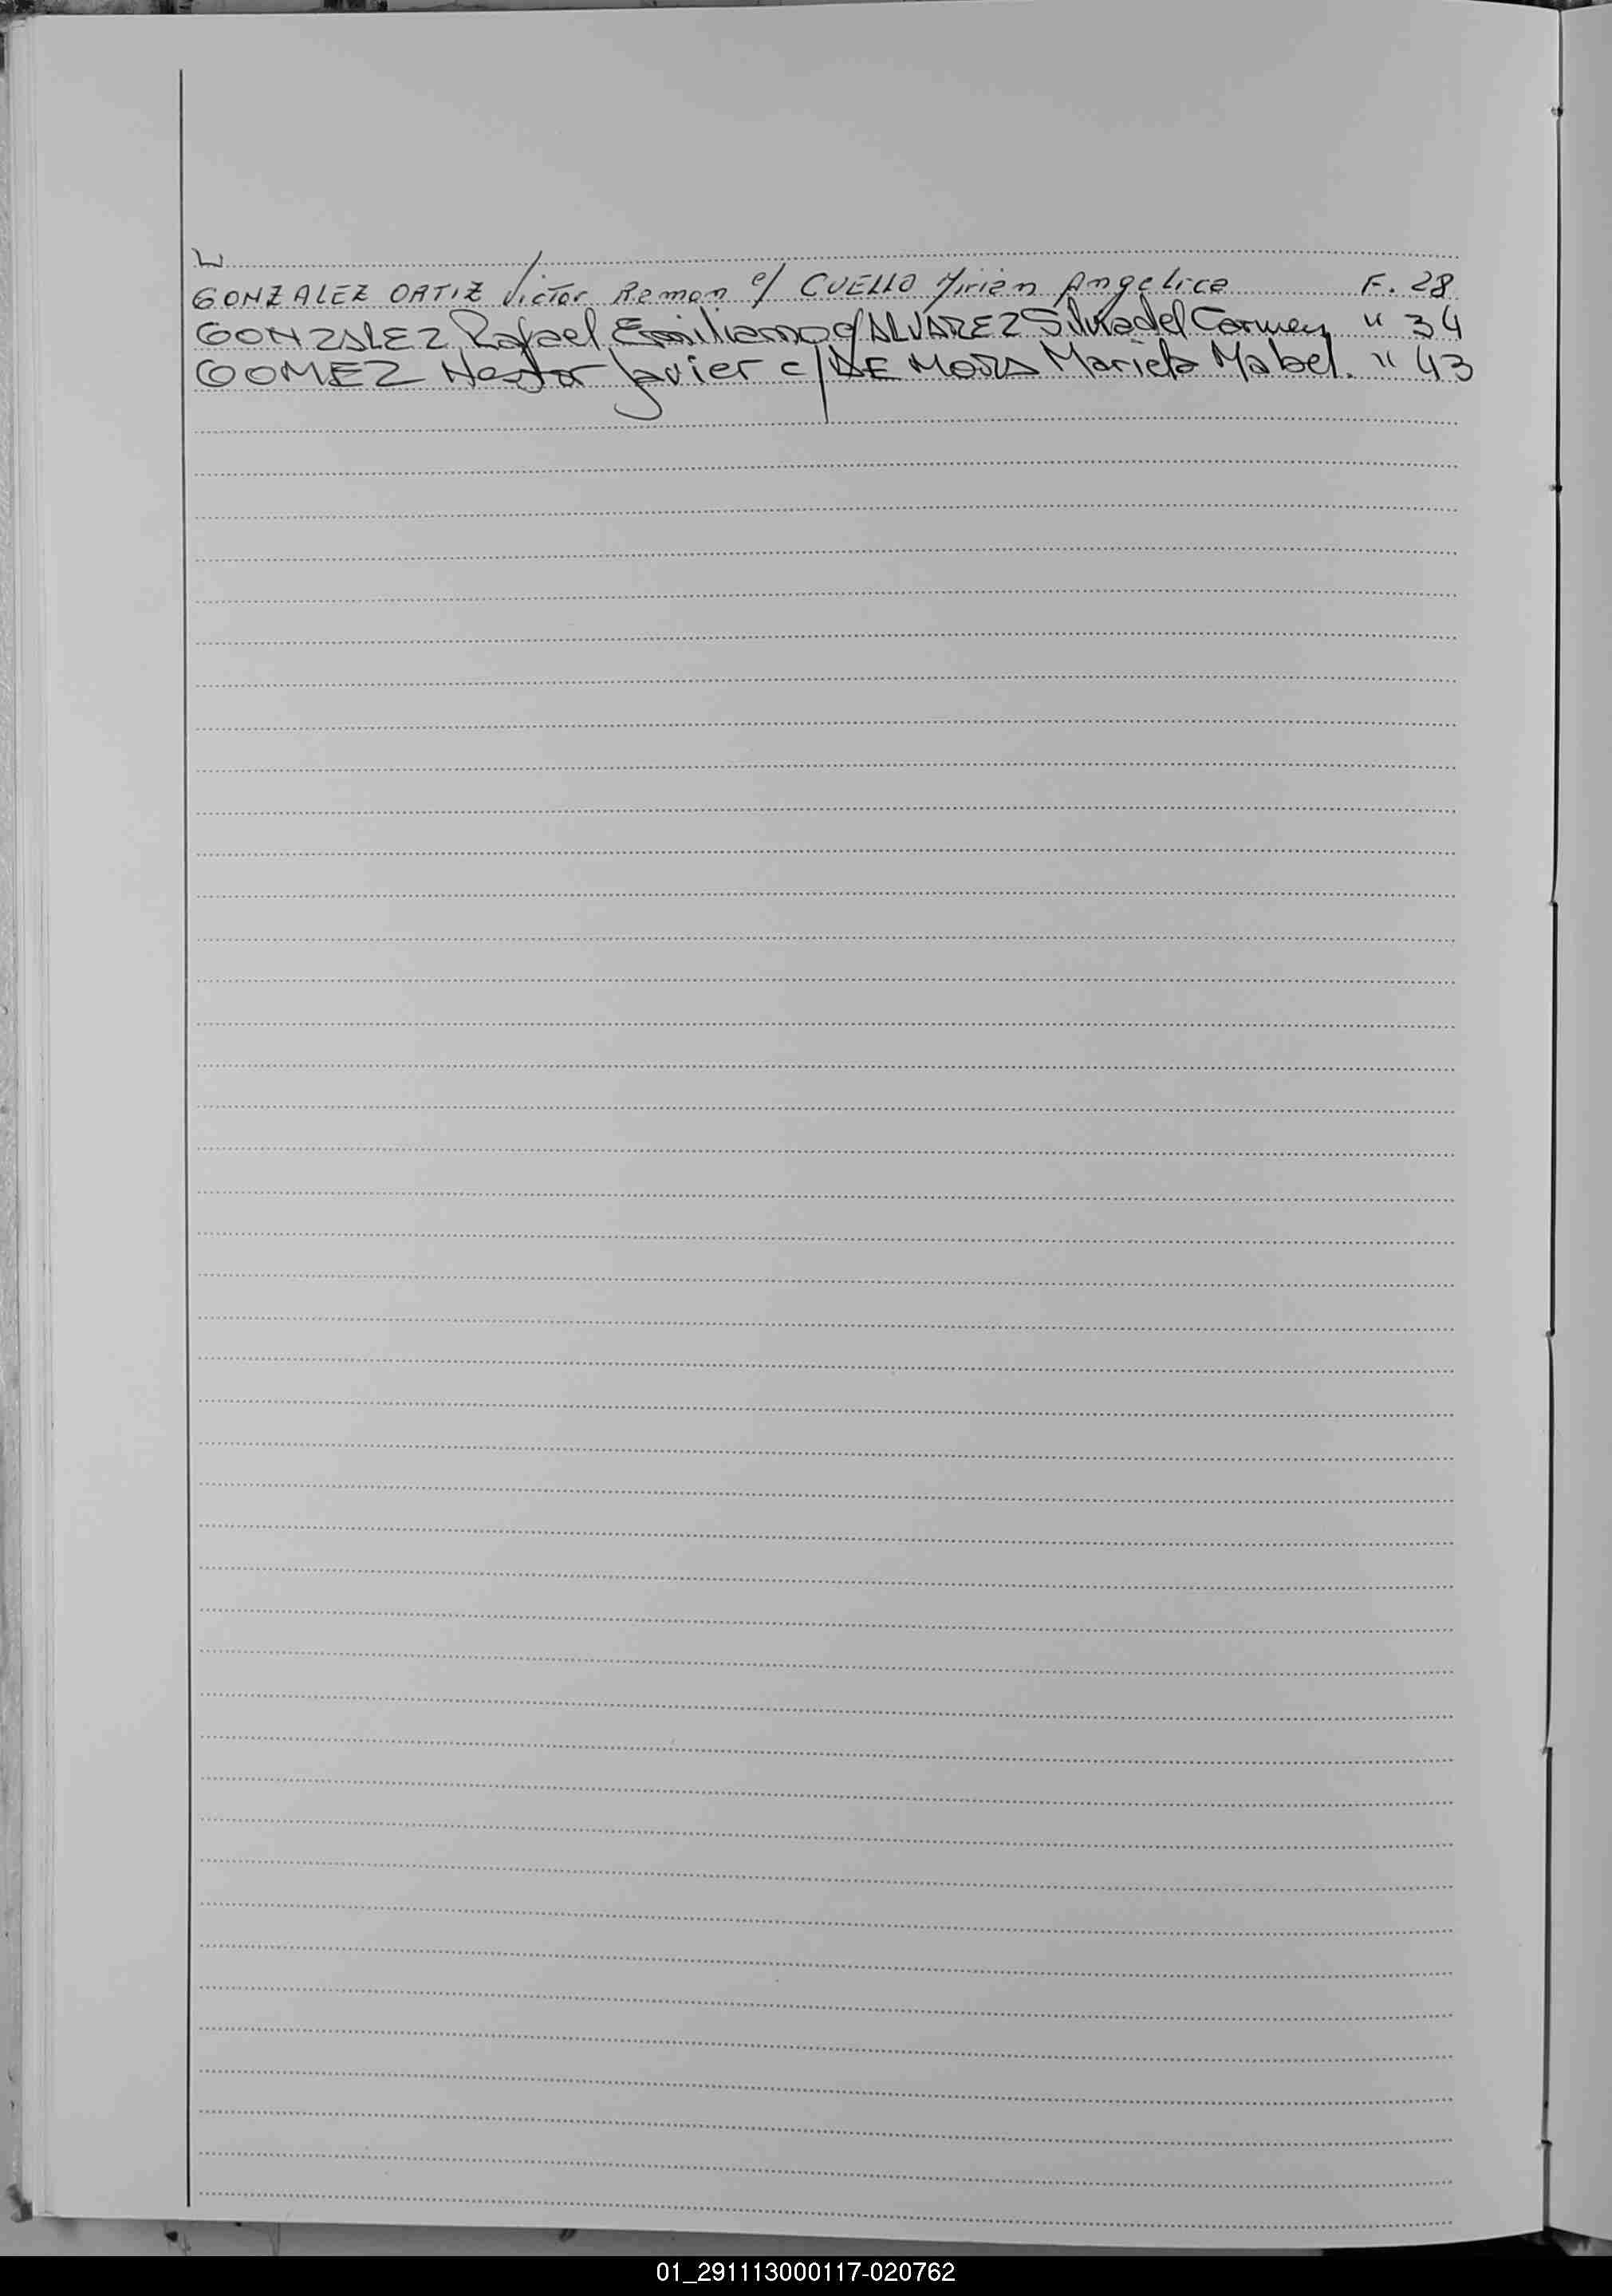 GONZALEZ ORTIZ Victor Ramon c/ CUELLO Mirian Angelica F. 28
GONZALEZ Rafael Emiliano c/ ALVAREZ Silvia del Carmen " 34
GOMEZ Nestor Javier c/ DE MORA Mariela Mabel. " 43
01_291113000117-020762